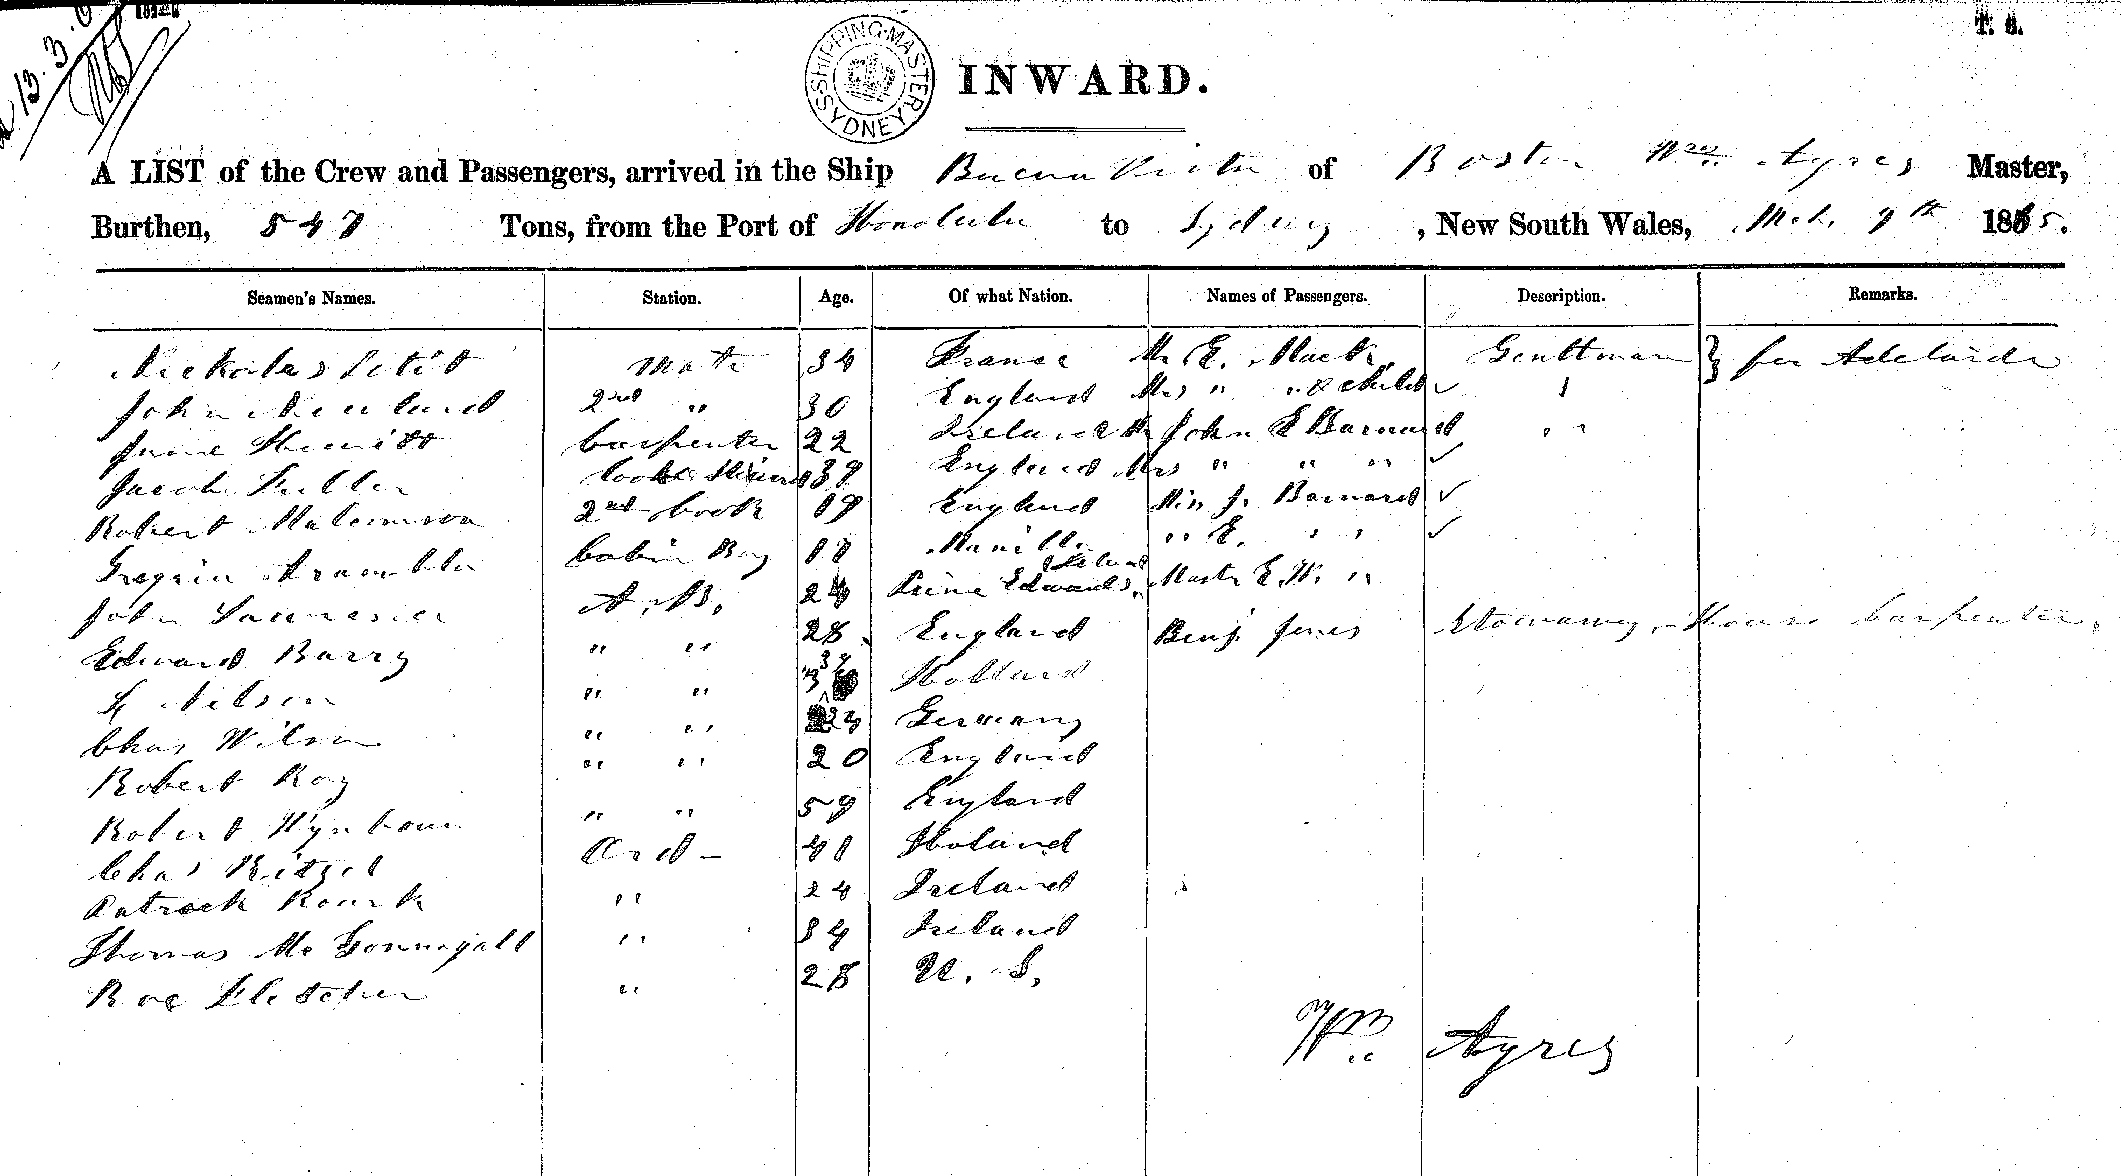 13.3.
SHIPPING MASTER SYDNEY
INWARD.
A LIST of the Crew and Passengers, arrived in the Ship Buena Vista of Boston Wm. Ayres Master,
Burthen, 547 Tons, from the Port of Honolulu to Sydney, New South Wales, Mch. 9th 1865.
Seamen's Names. Station. Age. Of what Nation. Names of Passengers. Description. Remarks.
Nickolas Petit Mate 34 France Mr E. Mack Gentleman } for Adelaide
John Newland 2nd " 30 England Mrs " " & Child
Carpenter 22 Ireland Mr John E Barnard " "
Jacob Fuller Cook & 39 England Mrs " " "
Robert 2nd Cook 19 England Miss J. Barnard
Cabin Boy 18 Manilla " E. " "
John A.B. 24 Prince Edwards Island Master E.W. "
Edward Barry " " 28 England Benj. Jones Stowaway - House Carpenter
Nilson " " 37 Holland
Chas Wilson " " 23 Germany
Robert Roy " " 20 England
Robert " " 59 England
Chas Ritzel Ord - 41 Holand
Patrick Rourk " 24 Ireland
Thomas Mc Gonnigall " 34 Ireland
Roe Fletcher " 28 U. S.
Wm Ayres